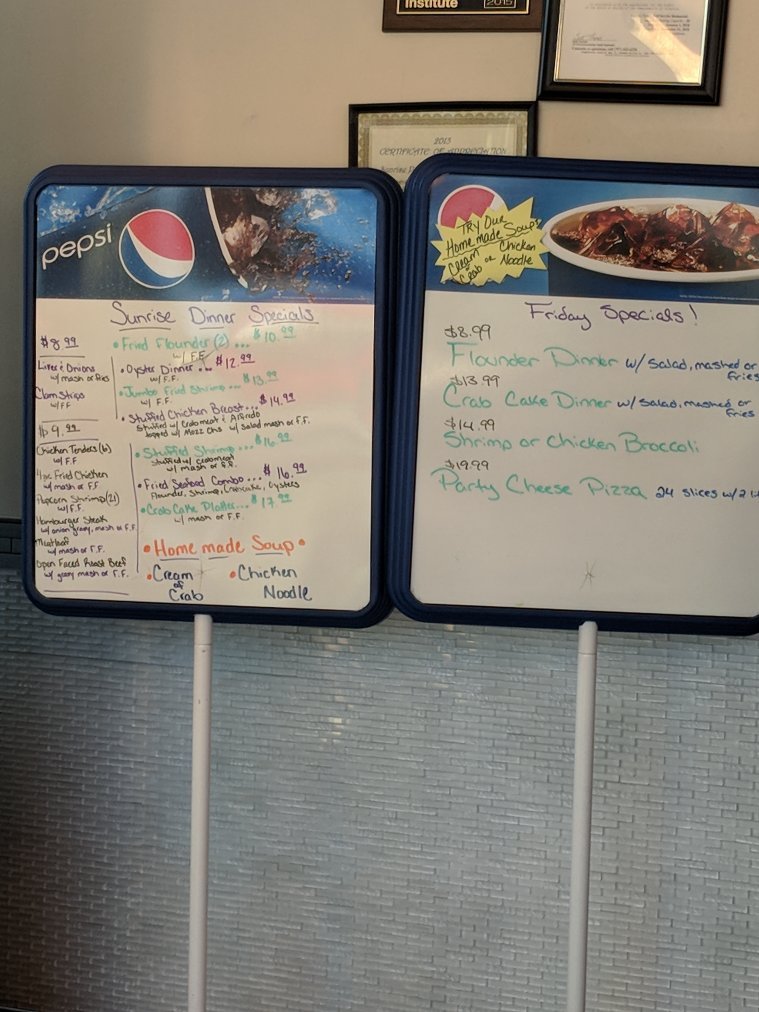 Institute 2015
2015
CERTIFICATE OF APPRECIATION
pepsi
Sunrise Dinner Specials
$8.99
Liver & Onions
w/ mash or fries
Clam Strips
w/ FF
$9.99
Chicken Tenders (6)
w/ F.F
4 pc Fried Chicken
w/ mash or F.F.
Popcorn Shrimp (21)
w/ F.F.
Hamburger Steak
w/ onion gravy, mash or F.F.
Meatloaf
w/ mash or F.F.
Open Faced Roast Beef
w/ gravy mash or F.F.
• Fried Flounder (2) ... $10.99
w/ F.F.
• Oyster Dinner ... $12.99
w/ F.F.
• Jumbo Fried Shrimp ... $13.99
w/ F.F.
• Stuffed Chicken Breast ... $14.99
Stuffed w/ Crabmeat & Alfredo
topped w/ Mozz Chs w/ Salad mash or F.F.
• Stuffed Shrimp ... $16.99
Stuffed w/ crabmeat
w/ mash or F.F.
• Fried Seafood Combo ... $16.99
Flounder, Shrimp, Crabcake, Oysters
• Crab Cake Platter ... $17.99
w/ mash or F.F.
• Home made Soup •
• Cream of Crab
• Chicken Noodle
TRY Our
Home made Soups
Cream Crab or Chicken Noodle
Friday Specials!
$8.99
Flounder Dinner w/ salad, mashed or
fries
$13.99
Crab Cake Dinner w/ salad, mashed or
fries
$14.99
Shrimp or Chicken Broccoli
$19.99
Party Cheese Pizza 24 slices w/ 2